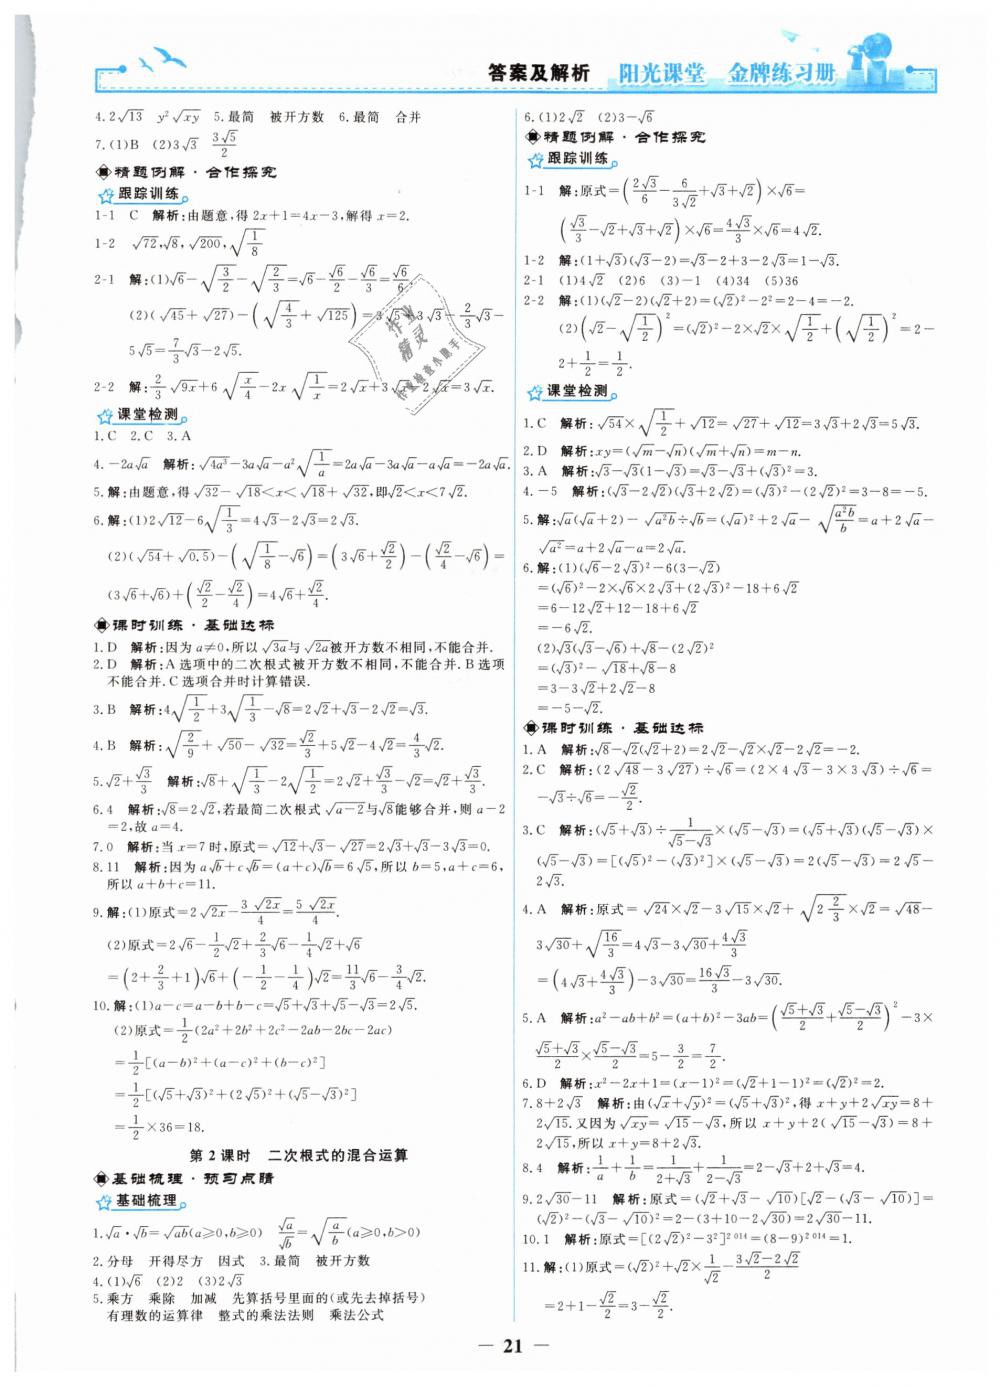 答案及解析 阳光课堂 金牌练习册
4.2√13 y²√xy 5.最简 被开方数 6.最简 合并
7.(1)B (2)3√3 3√5/2
精题例解·合作探究
跟踪训练
1-1 C 解析:由题意,得 2x+1=4x-3,解得 x=2.
1-2 √72,√8,√200,√(1/8)
2-1 解:(1)√6-√(3/2)-√(2/3)=√6-√6/2-√6/3=√6/6.
(2)(√45+√27)-(√(4/3)+√125)=3√5+3√3-2/3√3-
5√5=7/3√3-2√5.
2-2 解:2/3√9x+6√(x/4)-2x√(1/x)=2√x+3√x-2√x=3√x.
课堂检测
1.C 2.C 3.A
4.-2a√a 解析:√4a³-3a√a-a²√(1/a)=2a√a-3a√a-a√a=-2a√a.
5.解:由题意,得√32-√18<x<√18+√32,即√2<x<7√2.
6.解:(1)2√12-6√(1/3)=4√3-2√3=2√3.
(2)(√54+√0.5)-(√(1/8)-√6)=(3√6+√2/2)-(√2/4-√6)=
(3√6+√6)+(√2/2-√2/4)=4√6+√2/4.
课时训练·基础达标
1.D 解析:因为 a≠0,所以√3a与√2a被开方数不相同,不能合并.
2.D 解析:A 选项中的二次根式被开方数不相同,不能合并.B 选项
不能合并.C 选项合并时计算错误.
3.B 解析:4√(1/2)+3√(1/3)-√8=2√2+√3-2√2=√3.
4.B 解析:√(2/9)+√50-√32=√2/3+5√2-4√2=4/3√2.
5.√2+√3/3 解析:√8+√(1/3)-2√(1/2)=2√2+√3/3-√2=√2+√3/3.
6.4 解析:√8=2√2,若最简二次根式√a-2与√8能够合并,则 a-2
=2,故 a=4.
7.0 解析:当 x=7 时,原式=√12+√3-√27=2√3+√3-3√3=0.
8.11 解析:因为 a√b+c√b=(a+c)√b=6√5,所以 b=5,a+c=6,
所以 a+b+c=11.
9.解:(1)原式=2√2x-3√2x/4=5√2x/4.
(2)原式=2√6-1/2√2+2/3√6-1/4√2+√6
=(2+2/3+1)√6+(-1/2-1/4)√2=11/3√6-3/4√2.
10.解:(1)a-c=a-b+b-c=√5+√3+√5-√3=2√5.
(2)原式=1/2(2a²+2b²+2c²-2ab-2bc-2ac)
=1/2[(a-b)²+(a-c)²+(b-c)²]
=1/2[(√5+√3)²+(2√5)²+(√5-√3)²]
=1/2×36=18.
第 2 课时 二次根式的混合运算
基础梳理·预习点睛
基础梳理
1.√a·√b=√ab(a≥0,b≥0) √a/√b=√(a/b)(a≥0,b>0)
2.分母 开得尽方 因式 3.最简 被开方数
4.(1)√6 (2)2 (3)2√3
5.乘方 乘除 加减 先算括号里面的(或先去掉括号)
有理数的运算律 整式的乘法法则 乘法公式
6.(1)2√2 (2)3-√6
精题例解·合作探究
跟踪训练
1-1 解:原式=(2√3/6-6/3√2+√3+√2)×√6=
(√3/3-√2+√3+√2)×√6=4√3/3×√6=4√2.
1-2 解:(1+√3)(√3-2)=√3-2+3-2√3=1-√3.
2-1 (1)4√2 (2)6 (3)-1 (4)34 (5)36
2-2 解:(1)(√2-2)(√2+2)=(√2)²-2²=2-4=-2.
(2)(√2-√(1/2))²=(√2)²-2×√2×√(1/2)+(√(1/2))²=2-
2+1/2=1/2.
课堂检测
1.C 解析:√54×√(1/2)+√12=√27+√12=3√3+2√3=5√3.
2.D 解析:xy=(√m-√n)(√m+√n)=m-n.
3.A 解析:√3-√3(1-√3)=√3-√3+(√3)²=3.
4.-5 解析:(√3-2√2)(√3+2√2)=(√3)²-(2√2)²=3-8=-5.
5.解:√a(√a+2)-√a²b÷√b=(√a)²+2√a-√(a²b/b)=a+2√a-
√a²=a+2√a-a=2√a.
6.解:(1)(√6-2√3)²-6(3-√2)
=(√6)²-2×√6×2√3+(2√3)²-18+6√2
=6-12√2+12-18+6√2
=-6√2.
(2)√3(√3-√6)+√8-(2√2)²
=(√3)²-√18+√8-8
=3-3√2+2√2-8
=-5-√2.
课时训练·基础达标
1.A 解析:√8-√2(√2+2)=2√2-√2×√2-2√2=-2.
2.C 解析:(2√48-3√27)÷√6=(2×4√3-3×3√3)÷√6=
-√3÷√6=-√2/2.
3.C 解析:(√5+√3)÷1/(√5-√3)×(√5-√3)=(√5+√3)(√5-√3)×
(√5-√3)=[(√5)²-(√3)²]×(√5-√3)=2(√5-√3)=2√5-
2√3.
4.A 解析:原式=√24×√2-3√15×√2+√(2 2/3)×√2=√48-
3√30+√(16/3)=4√3-3√30+4√3/3
=(4√3+4√3/3)-3√30=16√3/3-3√30.
5.A 解析:a²-ab+b²=(a+b)²-3ab=((√5+√3)/2+(√5-√3)/2)²-3×
(√5+√3)/2×(√5-√3)/2=5-3/2=7/2.
6.D 解析:x²-2x+1=(x-1)²=(√2+1-1)²=(√2)²=2.
7.8+2√3 解析:由(√x+√y)²=(√5+√3)²,得 x+y+2√xy=8+
2√15.又因为√xy=√15-√3,所以 x+y+2(√15-√3)=8+
2√15,所以 x+y=8+2√3.
8.4 解析:1/a+1/b=1/(2+√3)+1/(2-√3)=2-√3+2+√3=4.
9.2√30-11 解析:原式=(√2+√3-√10)[√2-(√3-√10)]=
(√2)²-(√3-√10)²=2-(3+10-2√30)=2√30-11.
10.1 解析:原式=[(2√2)²-3²]²⁰¹⁴=(8-9)²⁰¹⁴=1.
11.解:(1)原式=(√2)²+√2×1/√2-(3√2-2√2)/2
=2+1-√2/2=3-√2/2.
21
作业
精灵
作业检查小助手